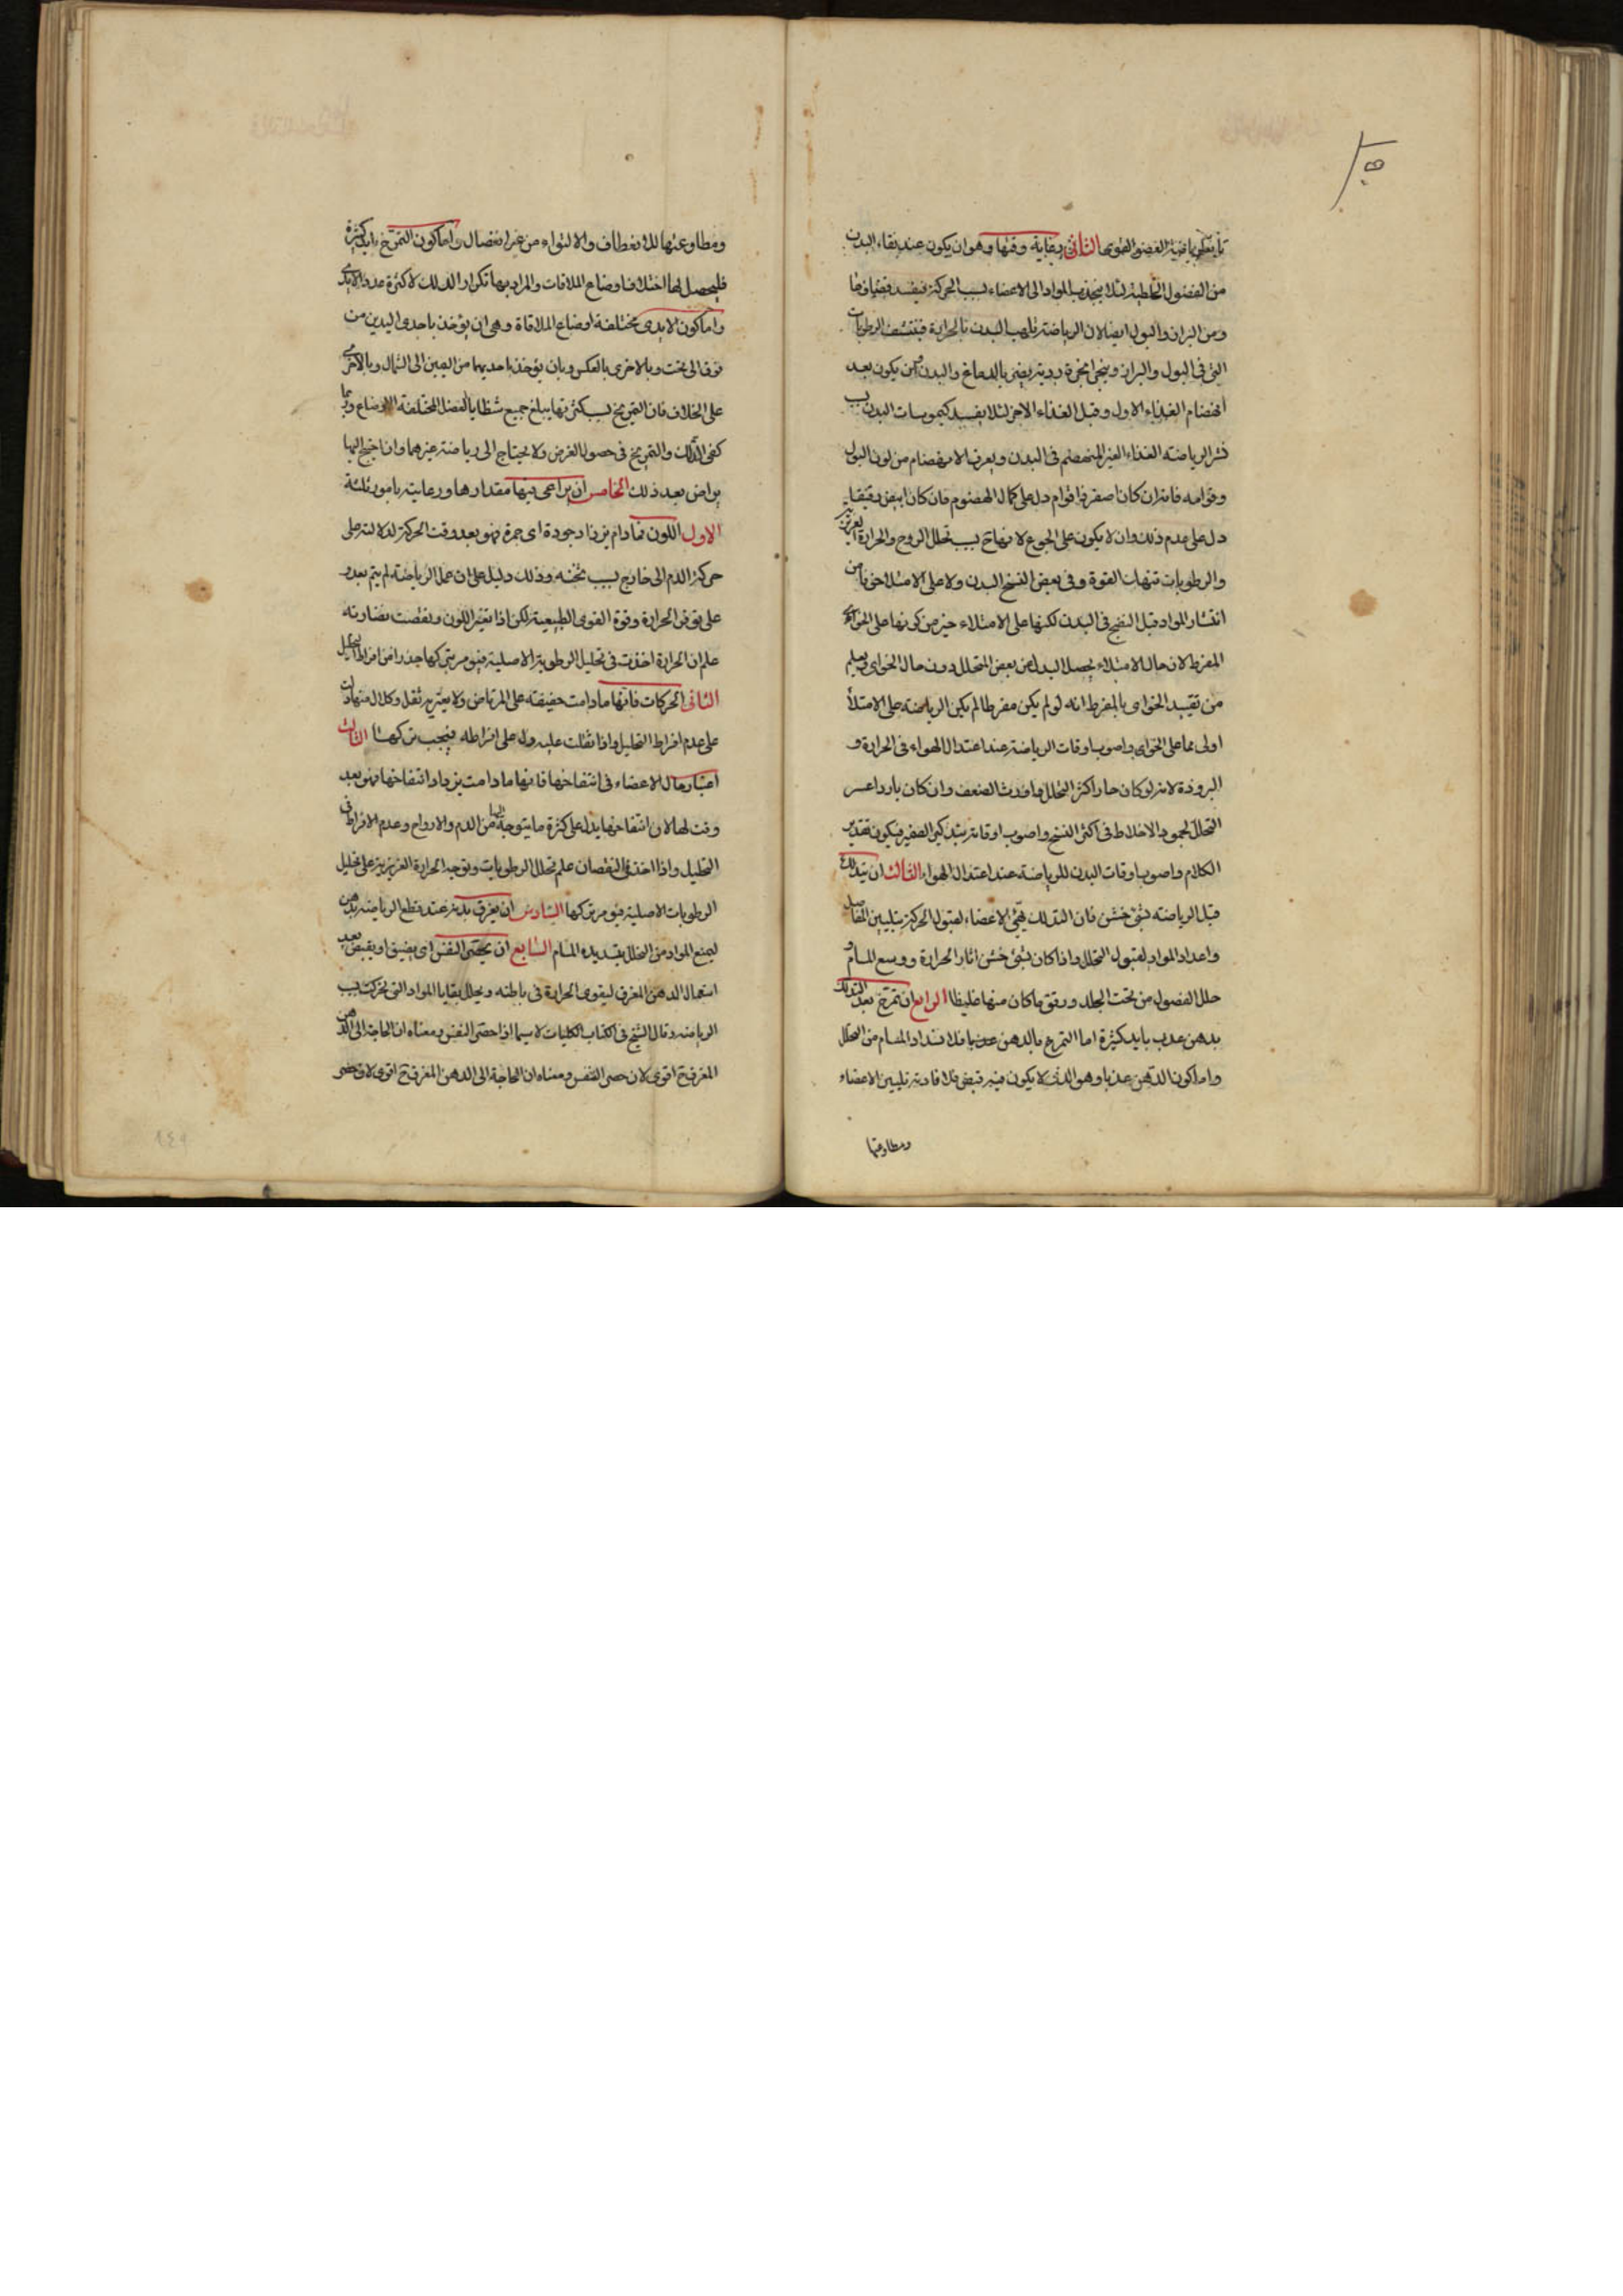 تابعة لرياضة العضو القوى الثانى رعاية وقتها وهو ان يكون عند نقاء البدن
من الفضول الخلطية لئلا ينجذب المواد الى الاعضاء بسبب الحركة فيفسد
ومن البراز والبول ايضا لان الرياضة تلهب البدن بالحرارة فتنتشف الرطوبات
التى فى البول والبراز وينجر ابخرة ردية يضر بالدماغ والبدن وان يكون بعد
انهضام الغذاء الاول وقبل الغذاء الاخر لئلا يفسد كيموسات البدن بسبب
نشر الرياضة الغذاء الغير المنهضم فى البدن ويعرف الانهضام من لون البول
وقوامه فانه ان كان اصفر ذا قوام دل على كمال الهضوم فان كان ابيض رقيقا
دل على عدم ذلك وان لا يكون على الجوع لانها ح بسبب تحلل الروح والحرارة الغريزية
والرطوبات تنهك القوة وفى بعض النسخ البدن ولا على الامتلاء خوفا من
انتشار المواد قبل النضج فى البدن لكنها على الامتلاء خير من كونها على الخواء
المفرط لان حال الامتلاء يحصل البدل عن بعض المتحلل دون حال الخواى ويعلم
من تقييد الخواى بالمفرط انه لو لم يكن مفرطا لم يكن الرياضة على الامتلاء
اولى مما على الخواى واصوب اوقات الرياضة عند اعتدال الهواء فى الحرارة و
البرودة لانه لو كان حارا كثر التحلل واورث الضعف وان كان باردا عسر
التحلل لجمود الاخلاط فى اكثر النسخ واصوب اوقاته بتذكير الضمير فيكون تقدير
الكلام واصوب اوقات البدن للرياضة عند اعتدال الهواء الثالث ان يتدلك
قبل الرياضة بشئ خشن فان التدلك يهيئ الاعضاء لقبول الحركة بتليين المفاصل
واعداد المواد لقبول التحلل واذا كان بشئ خشن اثار الحرارة ووسع المسام و
حلل الفضول من تحت الجلد ورقق ما كان منها غليظا الرابع ان تمرخ بعد التدلك
بدهن عذب بايد كثيرة اما التمرخ بالدهن فلانسداد المسام من التحلل
واما كون الدهن عذبا وهو الذى لا يكون فيه قبض فلافادته تليين الاعضاء
ومطاوعتها
ومطاوعتها للانعطاف والالتواء من غير انفصال واما كون التمرخ بايد كثيرة
فليحصل لها اختلاف اوضاع الملاقات والمراد بها تكرار الدلك لا كثرة عدد الايدى
واما كون الايدى مختلفة اوضاع الملاقاة وهى ان يؤخذ باحدى اليدين من
فوق الى تحت وبالاخرى بالعكس وبان يؤخذ باحديهما من اليمين الى الشمال وبالاخرى
على الخلاف فان التمريخ بسبب كثرتها يبلغ جميع شظايا العضل المختلفة الاوضاع وربما
كفى الدلك والتمريخ فى حصول الغرض ولا يحتاج الى رياضة غيرهما وان احتيج اليها
يراض بعد ذلك الخامس ان يراعى فيها مقدارها ورعايته بامور ثلثة
الاول اللون فما دام يزداد جودة اى حمرة فهو بعد وقت الحركة لدلالته على
حركة الدم الى خارج بسبب تخنه وذلك دليل على ان عمل الرياضة لم يتم بعد و
على توفر الحرارة وقوة القوى الطبيعية لكن اذا تغير اللون ونقصت نضارته
علم ان الحرارة اخذت فى تحليل الرطوبة الاصلية فيؤمر بتركها حذرا من افراط التحليل
الثانى الحركات فانها ما دامت خفيفة على المرتاض ولا يعتريه ثقل وكلال منها دلت
على عدم افراط التحليل واذا ثقلت عليه دل على افراطه فيجب تركها الثالث
اعتبار حال الاعضاء فى انتفاخها فانها ما دامت يزداد انتفاخها فهو بعد
وقت لها لان انتفاخها يدل على كثرة ما يتوجه اليها من الدم والارواح وعدم الافراط فى
التحليل واذا اخذ فى النقصان علم تحلل الرطوبات وتوجه الحرارة الغريزية على تحليل
الرطوبات الاصلية فيؤمر بتركها السادس ان يعرق بدنه عند قطع الرياضة بدهن
ليمنع المواد من التحلل بتسديده المسام السابع ان يحصى النفس اى يضيق او يقبض بعد
استعمال الدهن المعرق ليقوى الحرارة فى باطنه ويحلل بقايا المواد التى تحركت بسبب
الرياضة وقال الشيخ فى الكتاب الكليات لا سيما اذا حصر النفس ومعناه ان الحاجة الى الدهن
المعرق ح اقوى لان حصر النفس ومعناه ان الحاجة الى الدهن المعرق ح اقوى لان حصر